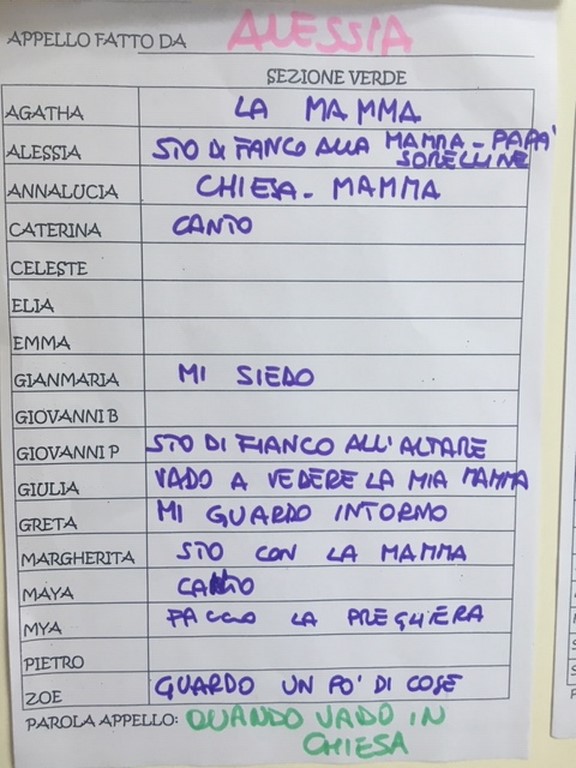 APPELLO FATTO DA ALESSIA
SEZIONE VERDE
AGATHA LA MAMMA
ALESSIA STO DI FANCO ALLA MAMMA - PAPA' SORELLINE
ANNALUCIA CHIESA - MAMMA
CATERINA CANTO
CELESTE
ELIA
EMMA
GIANMARIA MI SIEDO
GIOVANNI B
GIOVANNI P STO DI FIANCO ALL'ALTARE
GIULIA VADO A VEDERE LA MIA MAMMA
GRETA MI GUARDO INTORNO
MARGHERITA STO CON LA MAMMA
MAYA CANTO
MYA FACCIO LA PREGHIERA
PIETRO
ZOE GUARDO UN PO' DI COSE
PAROLA APPELLO: QUANDO VADO IN
CHIESA